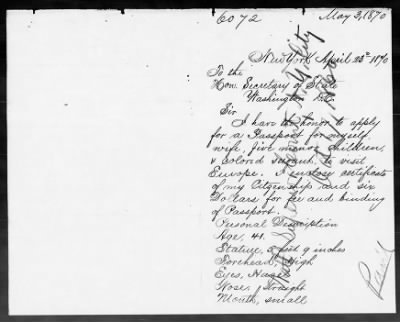 6072
May 3, 1870
New York April 23d 1870
To the
Hon. Secretary of State
Washington D.C.
Sir
I have the honor to apply
for a Passport for myself,
wife, five minor children,
& colored servant, to visit
Europe. I enclose certificate
of my Citizenship and six
Dollars for fee and binding
of Passport.
Personal Discription
Age, 41.
Stature, 5 feet 9 inches
Forehead, High
Eyes, Hazel
Nose, Straight
Mouth, small
N. Y. City